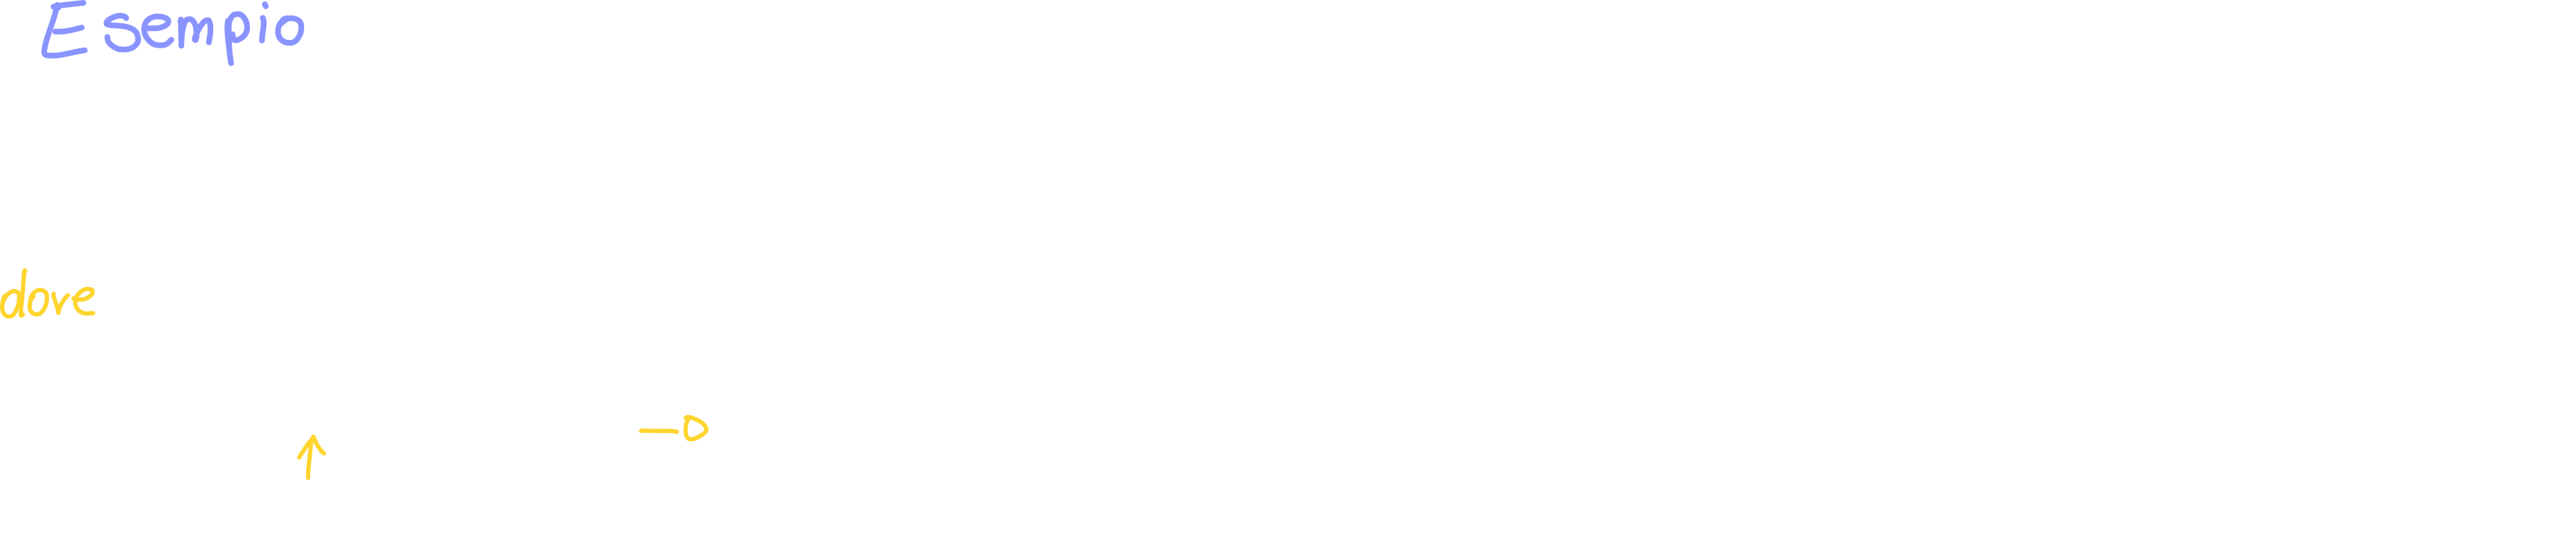 Esempio
dove
→
↑